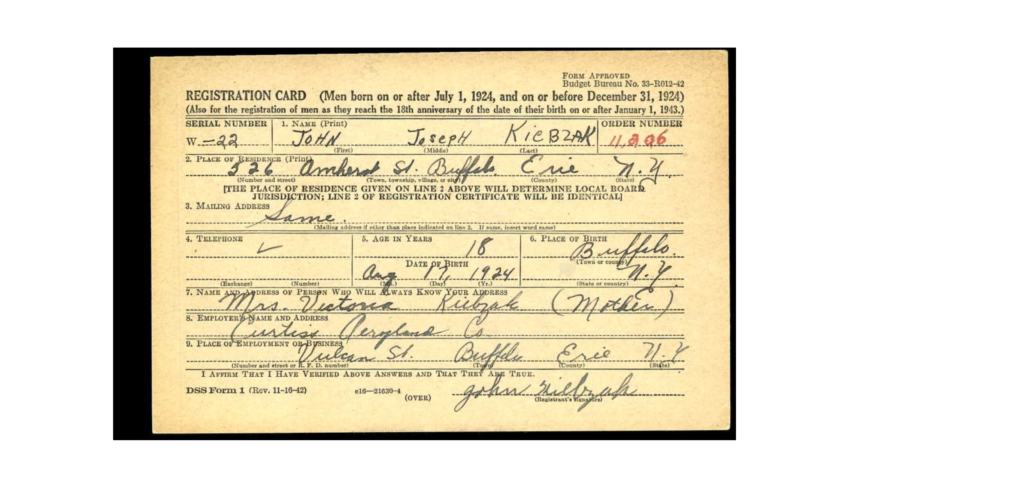 FORM APPROVED
Budget Bureau No. 33-R012-42
REGISTRATION CARD (Men born on or after July 1, 1924, and on or before December 31, 1924)
(Also for the registration of men as they reach the 18th anniversary of the date of their birth on or after January 1, 1943.)
SERIAL NUMBER 1. NAME (Print) ORDER NUMBER
W-22 JOHN JOSEPH KIEBZAK 11,206
(First) (Middle) (Last)
2. PLACE OF RESIDENCE (Print)
526 Amherst St. Buffalo Erie N.Y.
(Number and street) (Town, township, village, or city) (County) (State)
[THE PLACE OF RESIDENCE GIVEN ON LINE 2 ABOVE WILL DETERMINE LOCAL BOARD
JURISDICTION; LINE 2 OF REGISTRATION CERTIFICATE WILL BE IDENTICAL]
3. MAILING ADDRESS
Same.
(Mailing address if other than place indicated on line 2. If same, insert word same)
4. TELEPHONE 5. AGE IN YEARS 6. PLACE OF BIRTH
18 Buffalo.
(Town or county)
DATE OF BIRTH
Aug 17, 1924 N.Y.
(Exchange) (Number) (Mo.) (Day) (Yr.) (State or country)
7. NAME AND ADDRESS OF PERSON WHO WILL ALWAYS KNOW YOUR ADDRESS
Mrs. Victoria Kiebzak (Mother)
8. EMPLOYER'S NAME AND ADDRESS
Curtiss Co.
9. PLACE OF EMPLOYMENT OR BUSINESS
Vulcan St. Buffalo Erie N.Y.
(Number and street or R. F. D. number) (Town) (County) (State)
I AFFIRM THAT I HAVE VERIFIED ABOVE ANSWERS AND THAT THEY ARE TRUE.
DSS Form 1 (Rev. 11-16-42) e16-21630-4 (OVER) John Kiebzak
(Registrant's signature)